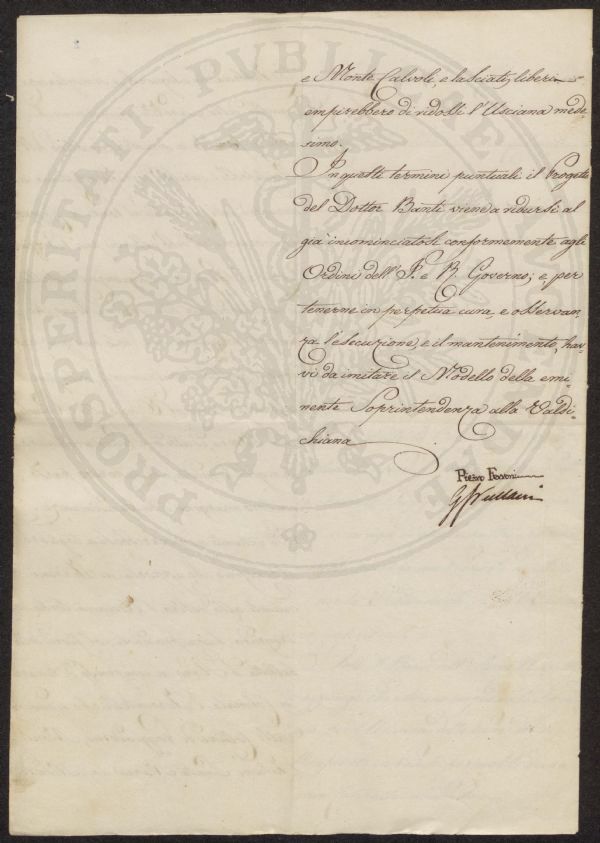 e Monte Calvoli, e lasciati, liberi
empirebbero di ridossi l'Usciana mede-
simo.
In questi termini puntuali il Progetto
del Dottor Banti viene a ridursi al
già incominciatosi conformemente agli
Ordini dell' I. e R. Governo; e, per
tenerne in perpetua cura, e osservan-
za l'esecuzione, e il mantenimento, hav-
vi da imitare il Modello della emi-
nente Soprintendenza alla Valdi-
chiana
Pietro Ferroni
PROSPERITATI PVBLICAE